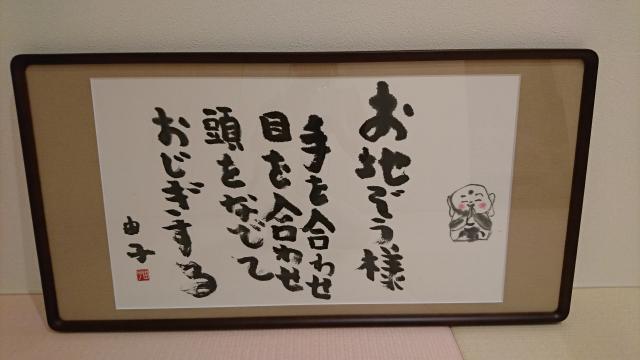 お地ぞう様
手を合わせ
目を合わせ
頭をなでて
おじぎする
由子